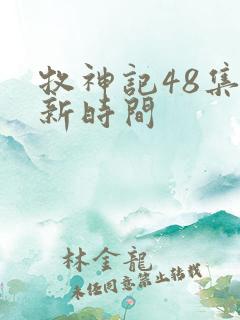 牧神記48集
新時間
林金龍
未經同意禁止轉載